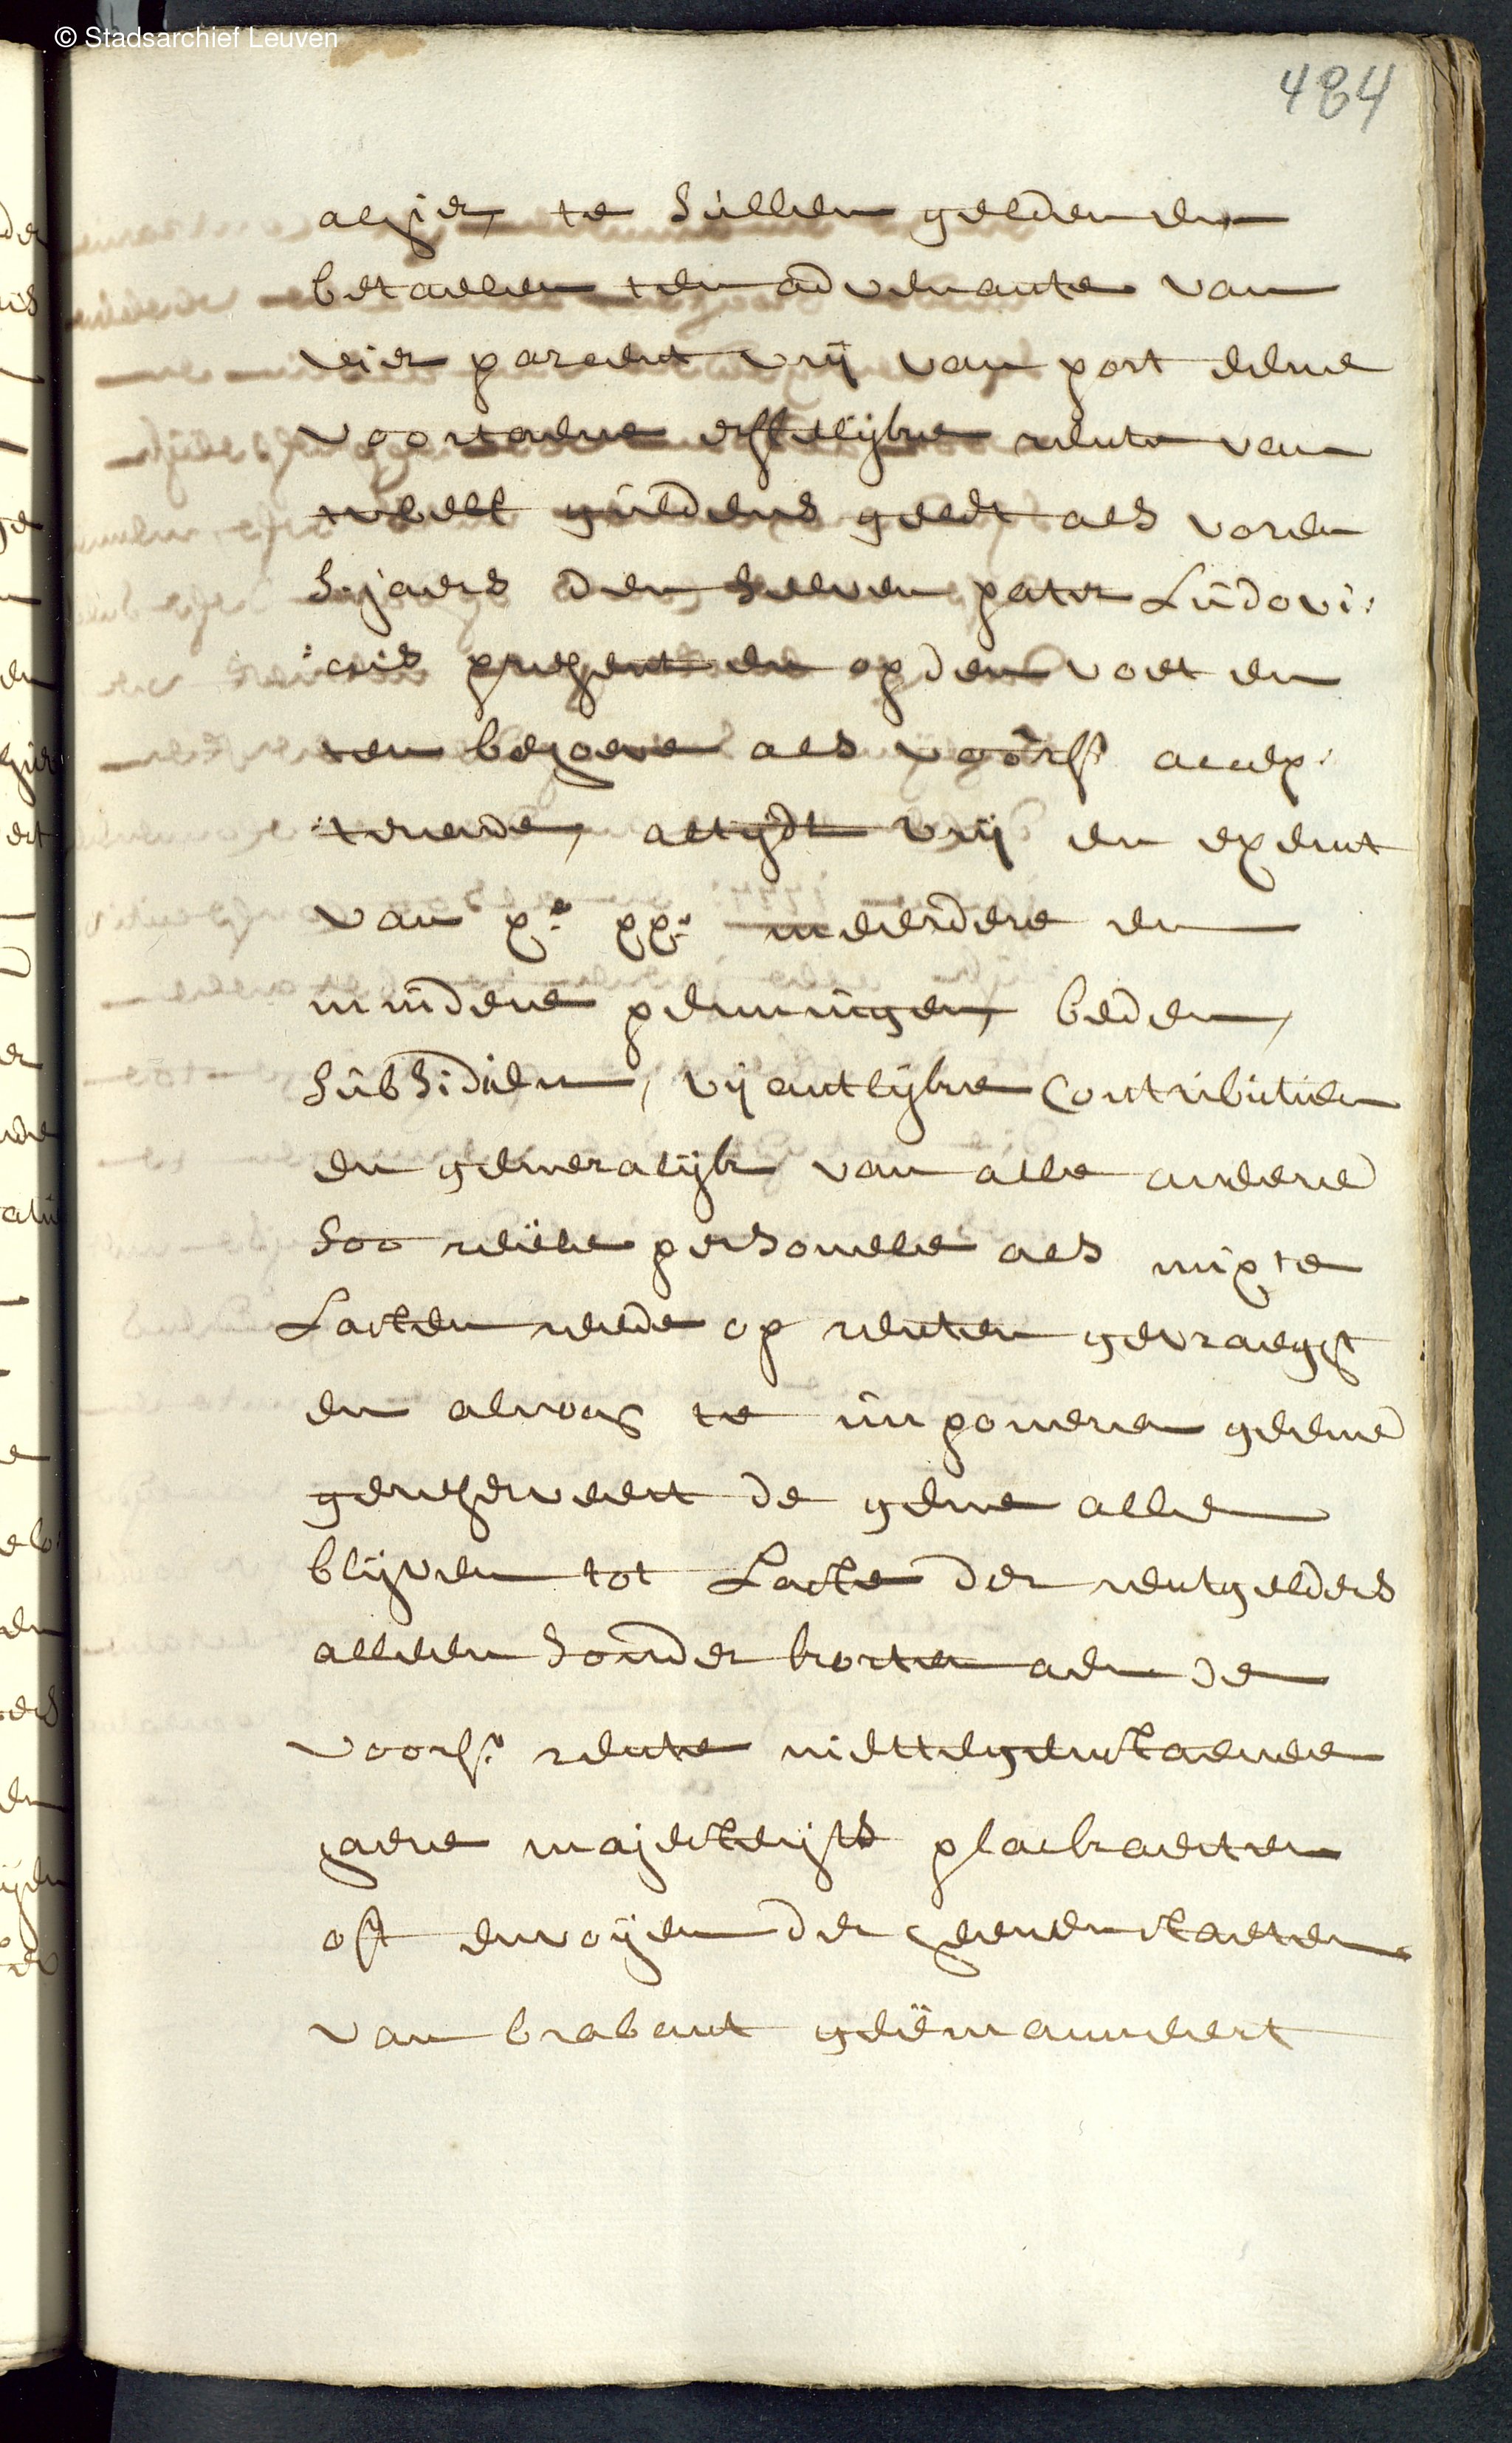 © Stadsarchief Leuven
484
alhier, te sullen gelden en
betaelen ten advenante van
vier parcent vrij van port eene
voortaene erffelijke rente van
twelf guldens geldt als voren
s'jaers den selven pater Ludovi:
:cus present en op den voet en
ten behoeve als voorst accep:
:terende, altijdt vrij en exempt
van xe. xxe. meerdere en
mindere penningen, beden,
subsidien, vijantlijke Contributien
en generalijk van alle andere
soo reële personele als mixte
Lasten reede op renten gevraegt
en alnoch te imponeren geene
gereserveert de gene alle
blijven tot Laste der rentgelders
alleen sonder korten aen de
voorst. rente niettegenstaende
haere majesteijts plackaeten
oft envoijen der heeren staeten
van brabant geëmanneert